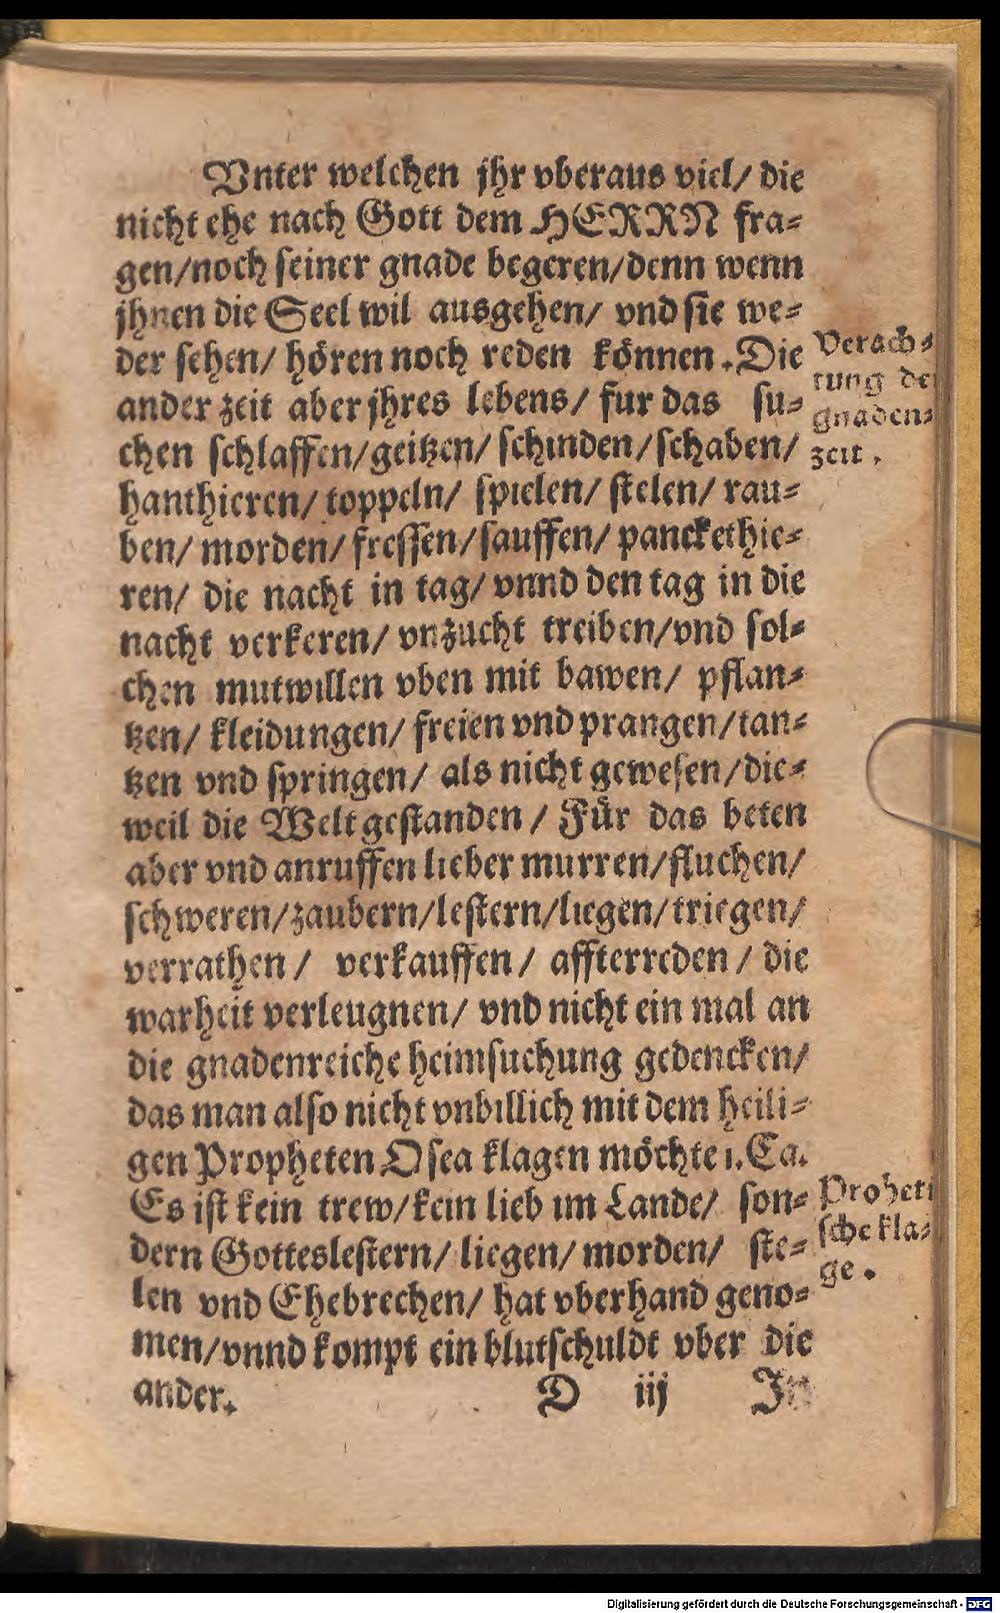 Vnter welchen jhr vberaus viel/ die
nicht ehe nach Gott dem HERRN fra-
gen/noch seiner gnade begeren/denn wenn
jhnen die Seel wil ausgehen/ vnd sie we-
der sehen/ hören noch reden können. Die
ander zeit aber jhres lebens/ fur das su-
chen schlaffen/geitzen/ schinden/schaben/
hanthieren/ toppeln/ spielen/ stelen/ rau-
ben/ morden/ fressen/sauffen/ panckethie-
ren/ die nacht in tag/ vnnd den tag in die
nacht verkeren/ vnzucht treiben/vnd sol-
chen mutwillen vben mit bawen/ pflan-
tzen/ kleidungen/ freien vnd prangen/tan-
tzen vnd springen/ als nicht gewesen/die-
weil die Welt gestanden/ Für das beten
aber vnd anruffen lieber murren/fluchen/
schweren/zaubern/lestern/liegen/triegen/
verrathen/ verkauffen/ affterreden/ die
warheit verleugnen/ vnd nicht ein mal an
die gnadenreiche heimsuchung gedencken/
das man also nicht vnbillich mit dem heili-
gen Propheten Osea klagen möchte 1. Ca.
Es ist kein trew/kein lieb im Lande/ son-
dern Gotteslestern/ liegen/ morden/ ste-
len vnd Ehebrechen/ hat vberhand geno-
men/vnnd kompt ein blutschuldt vber die
ander.
D iij In
Verach-
tung der
gnaden-
zeit.
Propheti
sche kla-
ge.
Digitalisierung gefördert durch die Deutsche Forschungsgemeinschaft - DFG